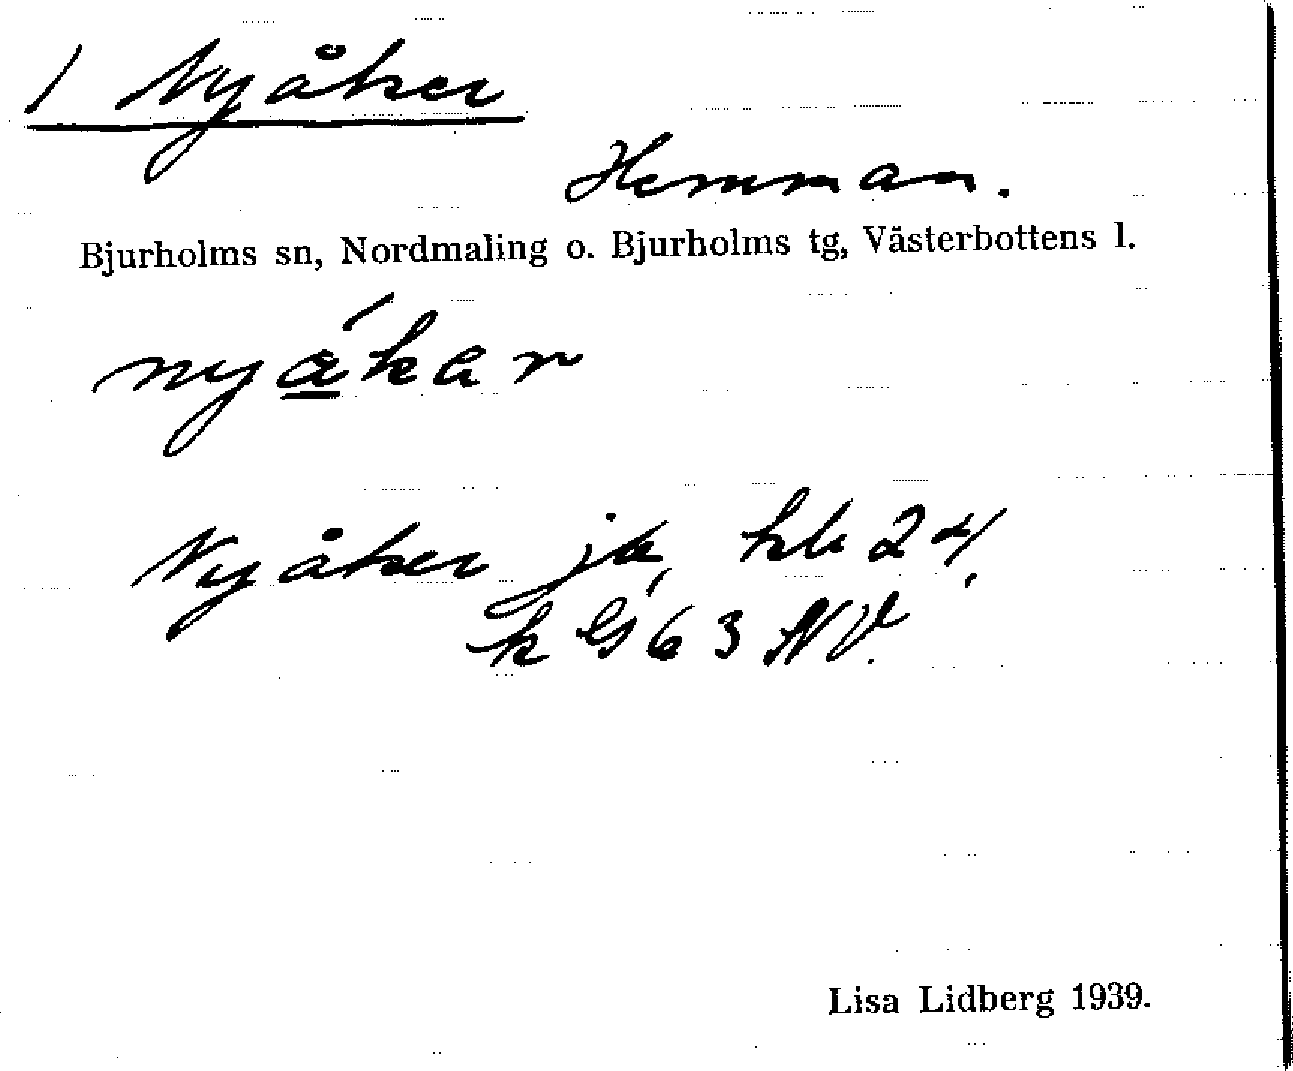 1 Nyåker
Hemman.
Bjurholms sn, Nordmaling o. Bjurholms tg, Västerbottens l.
nyá̱kar
Nyåker jb, kb 24,
k G 63 NV.
Lisa Lidberg 1939.